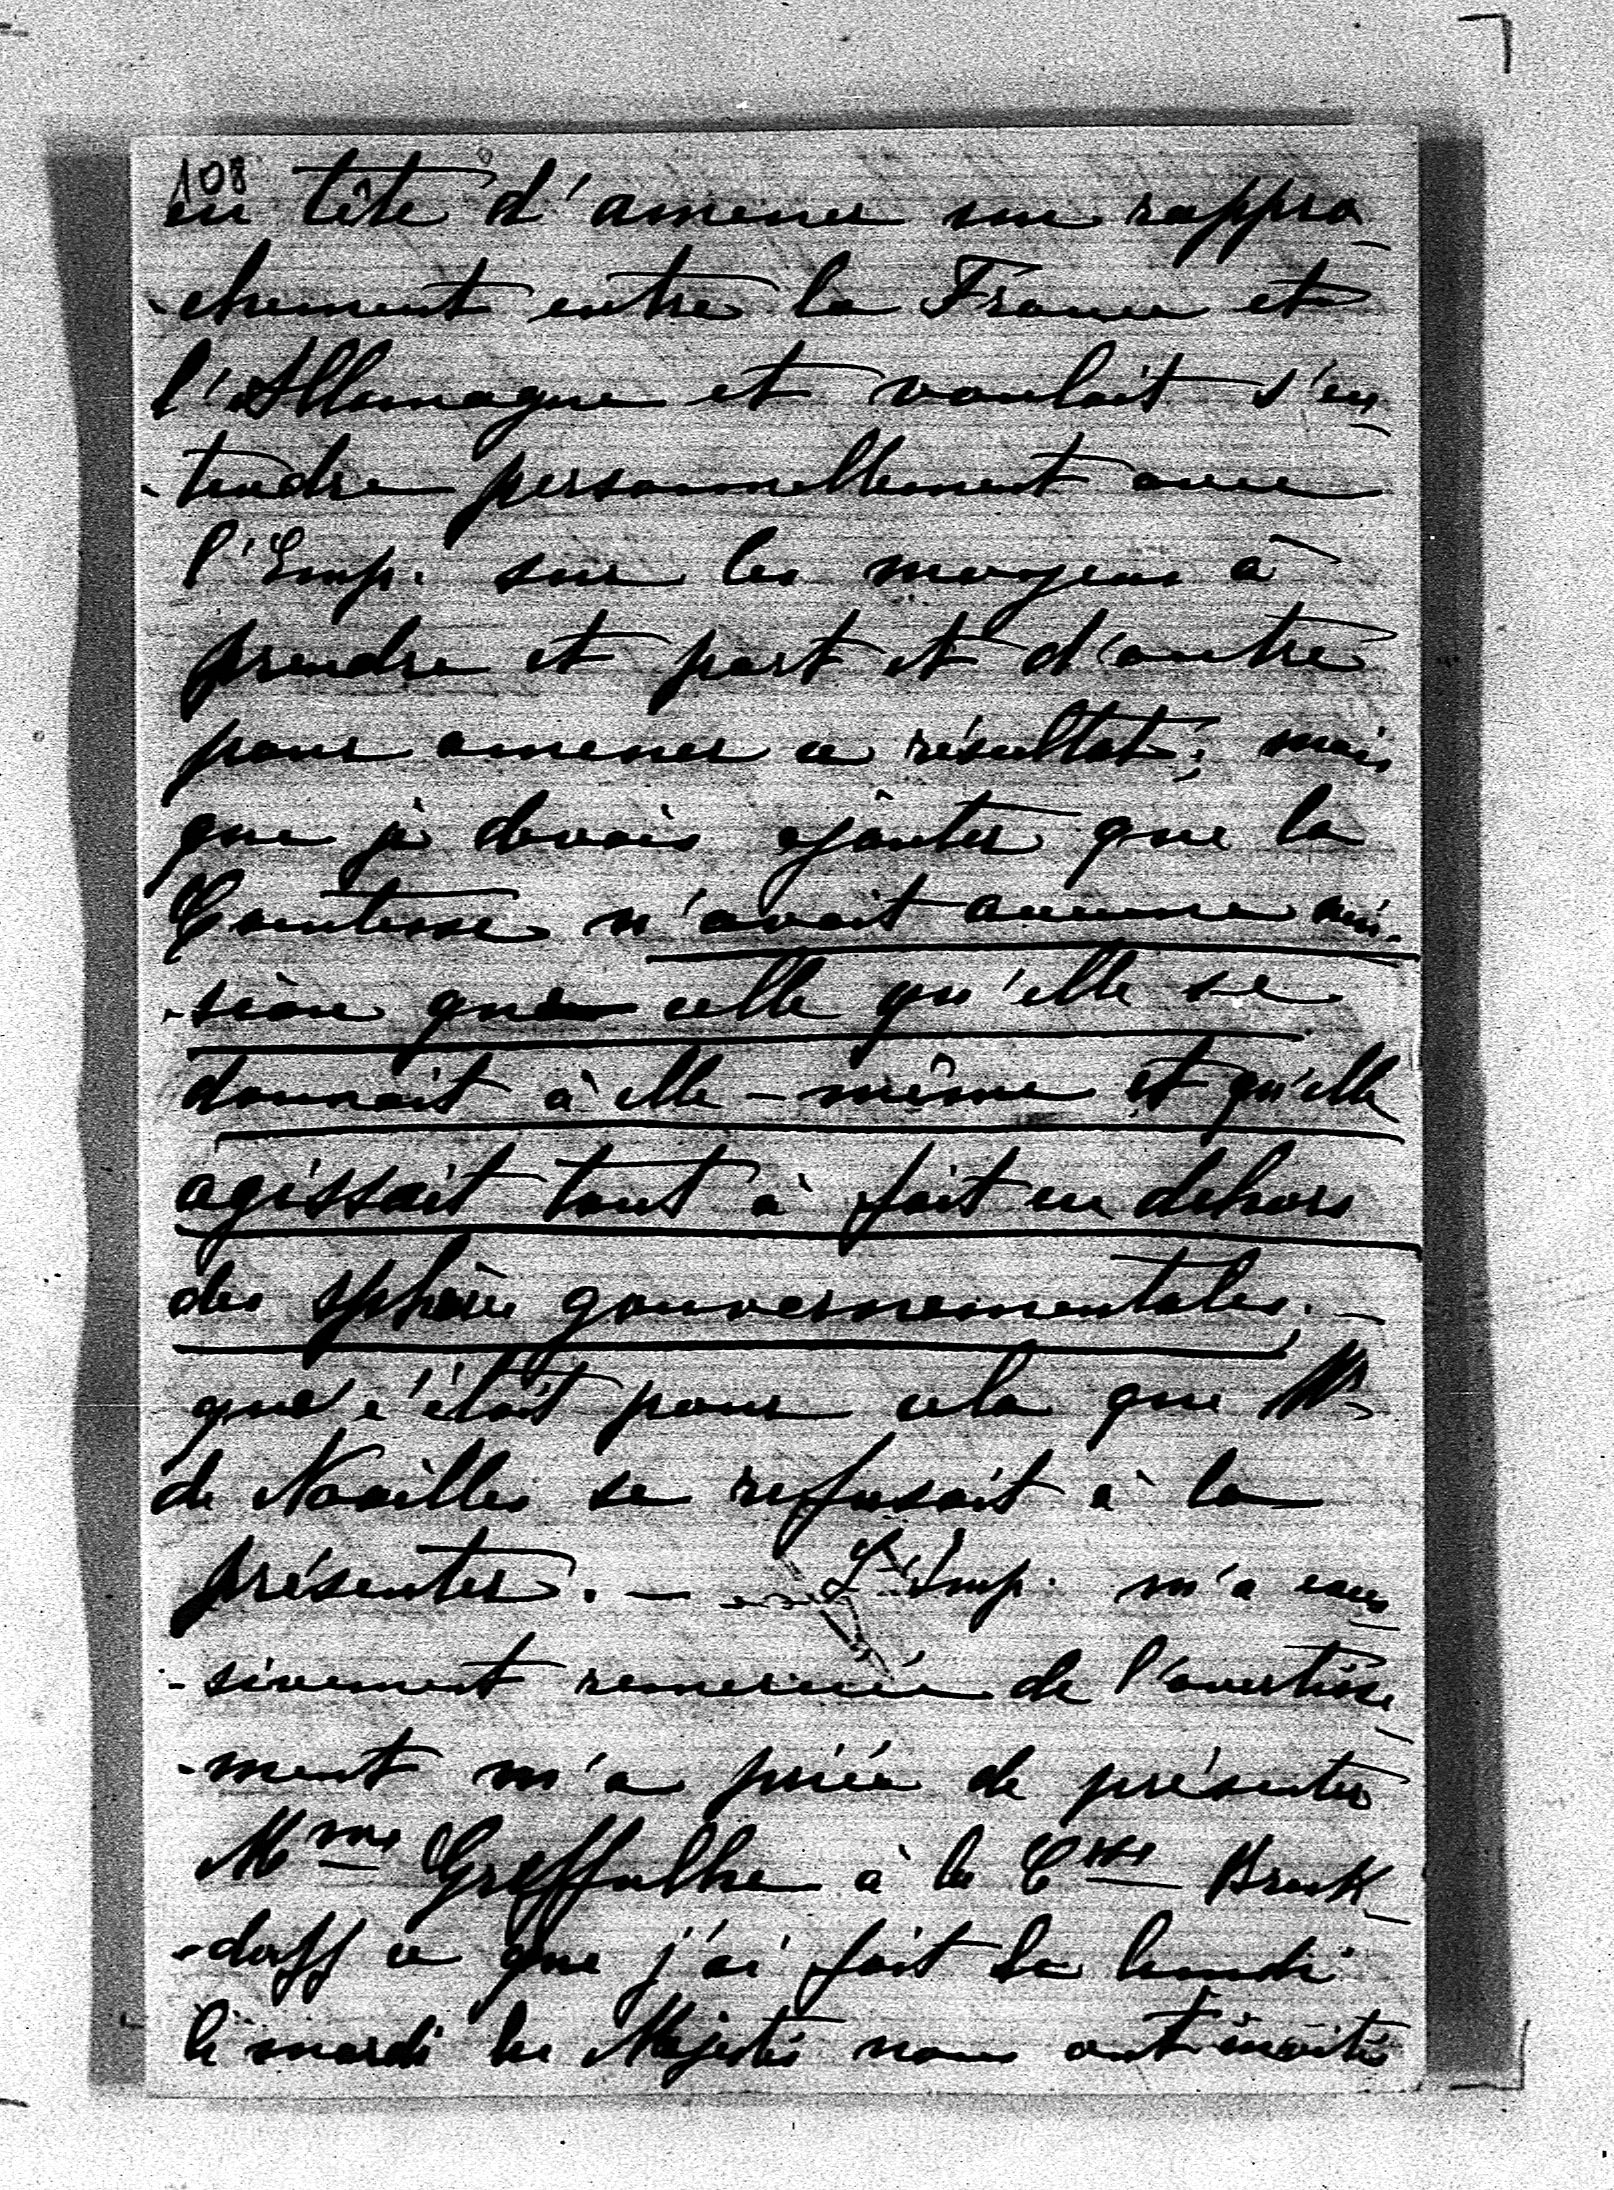 108
en tête d'amener un rappro-
-chement entre la France et
l'Allemagne et voulait s'en-
-tendre personnellement avec
l'Emp. sur les moyens à
prendre et part et d'autre
pour amener ce résultat; mais
que je devais ajouter que la
Comtesse n'avait aucune mis-
-sion que celle qu'elle se
donnait à elle-même et qu'elle
agissait tout à fait en dehors
des sphères gouvernementales. -
que c'était pour cela que Mr
de Noailles se refusait à la
présenter. - L'Emp. m'a exces-
-sivement remerciée de l'avertisse-
-ment m'a priée de présenter
Mme Greffulhe à la Csse Brock-
-dorff ce que j'ai fait le lundi
le mardi les Majestés nous ont invités